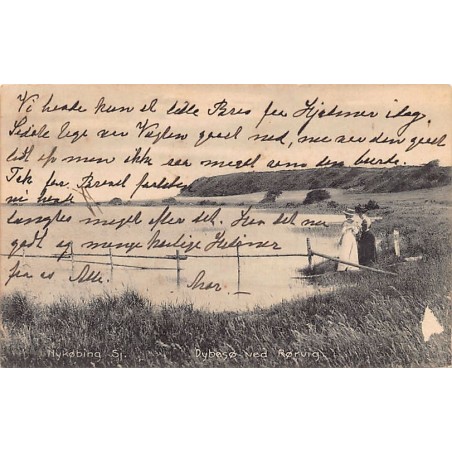 Vi havde kun et lille Brev fra Hjalmar idag.
Sidste Uge var Vægten gaaet ned, nu var den gaaet
lidt op men ikke saa meget som den burde.
Tak for Brevet forleden
vi havde
længtes meget efter det. Har det nu
godt og mange kærlige Hilsner
fra os Alle. Mor.
Nykøbing Sj. Dybesø ved Rørvig.